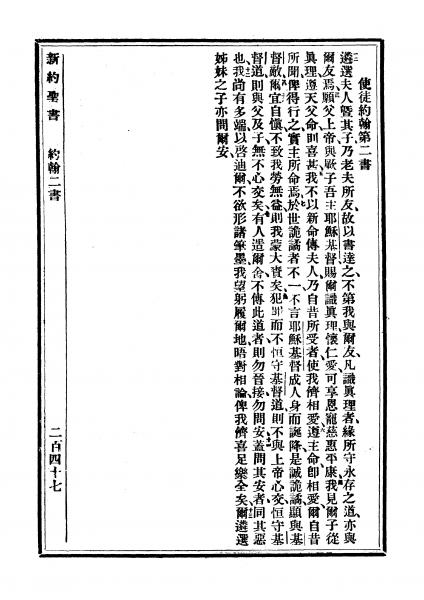 使徒約翰第二書
遴選夫人暨其子乃老夫所友故以書達之不第我與爾友凡識眞理者緣所守永存之道亦與
爾友焉願父上帝與厥子吾主耶穌基督賜爾識眞理懷仁愛可享恩寵慈惠平康我見爾子從
眞理遵天父命則喜甚我不以新命傳夫人乃自昔所受者使我儕相愛遵主命卽相愛爾自昔
所聞俾得行之實主所命焉於世詭譎者不一不言耶穌基督成人身而誕降是誠詭譎顯與基
督敵爾宜自愼不致我勞無益則我蒙大賚矣犯罪而不恒守基督道則不與上帝心交恒守基
督道則與父及子無不心交矣有人造爾舍不傳此道者則勿晉接勿問安蓋問其安者同其惡
也我尚有多端以啓迪爾不欲形諸筆墨我望躬履爾地晤對相論俾我儕喜足樂全矣爾遴選
姊妹之子亦問爾安
新約聖書 約翰二書 二百四十七